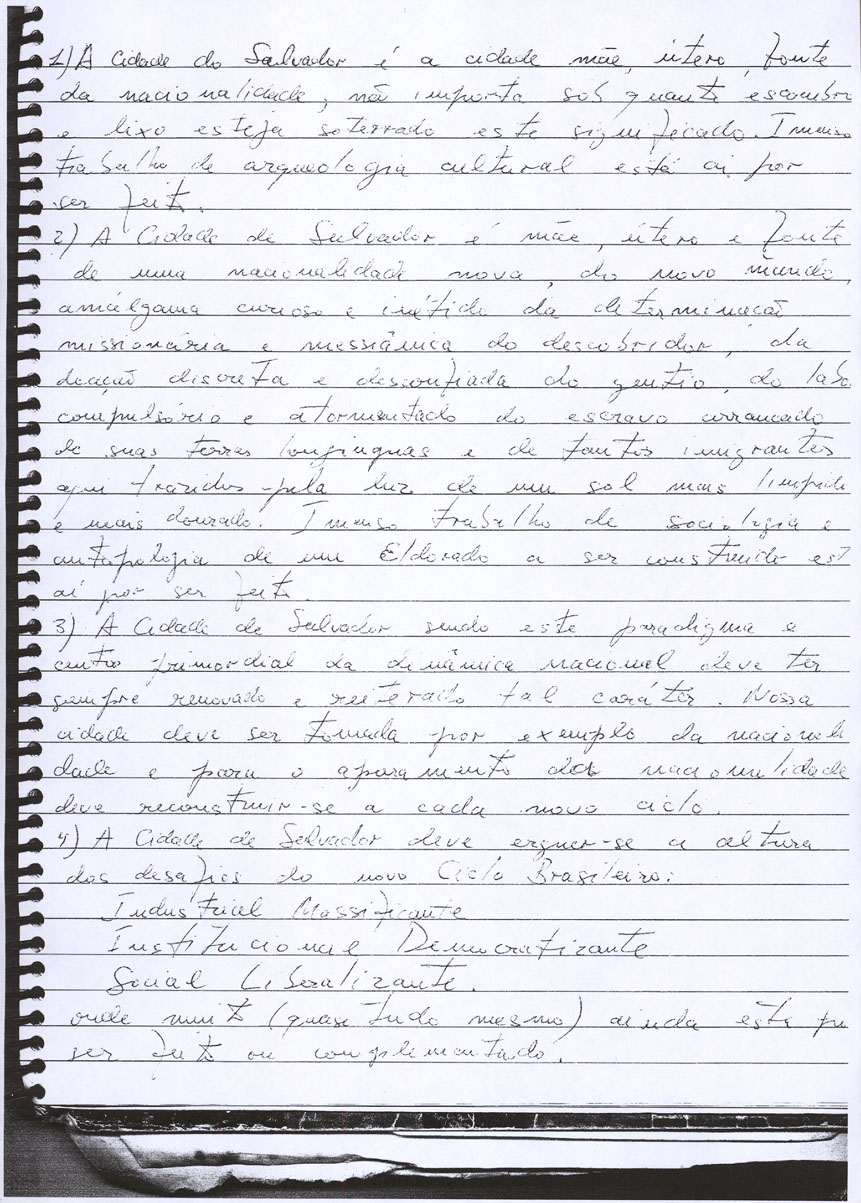 1) A Cidade do Salvador é a cidade mãe, útero, fonte
da nacionalidade, não importa sob quanto escombro
e lixo esteja soterrado este significado. Imenso
trabalho de arqueologia cultural está aí por
ser feito.
2) A Cidade de Salvador é mãe, útero e fonte
de uma nacionalidade nova, do novo mundo,
amálgama curioso e inédito da determinação
missionária e messiânica do descobridor, da
doação discreta e desconfiada do gentio, do labor
compulsório e atormentado do escravo arrancado
de suas terras longínquas e de tantos imigrantes
aqui trazidos pela luz de um sol mais límpido
e mais dourado. Imenso trabalho de sociologia e
antropologia de um Eldorado a ser construído está
aí por ser feito.
3) A Cidade de Salvador sendo este paradigma e
centro primordial da dinâmica nacional deve ter
sempre renovado e reiterado tal caráter. Nossa
cidade deve ser tomada por exemplo da nacionali
dade e para o aparamento da nacionalidade
deve reconstruir-se a cada novo ciclo.
4) A Cidade de Salvador deve erguer-se a altura
dos desafios do novo Ciclo Brasileiro:
Industrial Massificante
Institucional Democratizante
Social Liberalizante.
onde muito (quase tudo mesmo) ainda está por
ser feito ou complementado.